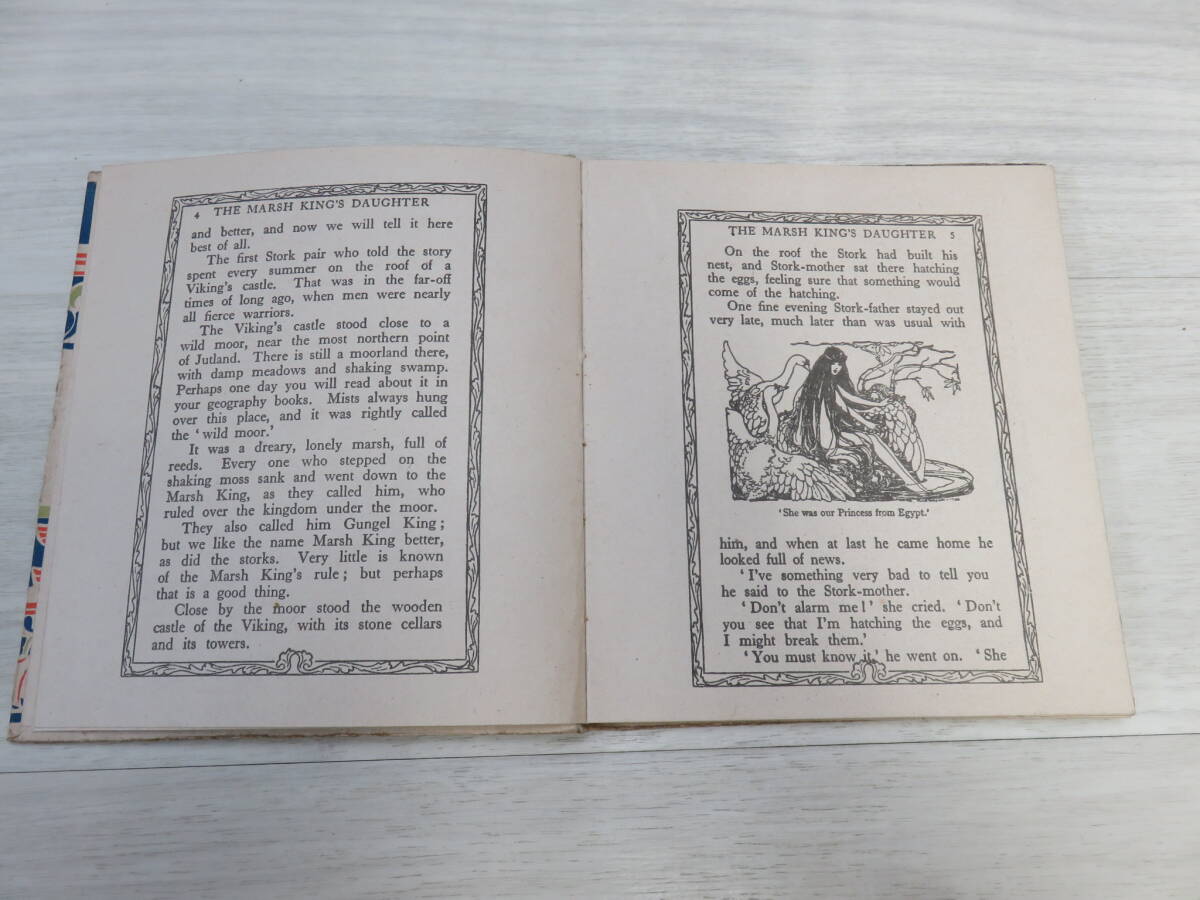 4 THE MARSH KING'S DAUGHTER
and better, and now we will tell it here
best of all.
The first Stork pair who told the story
spent every summer on the roof of a
Viking's castle. That was in the far-off
times of long ago, when men were nearly
all fierce warriors.
The Viking's castle stood close to a
wild moor, near the most northern point
of Jutland. There is still a moorland there,
with damp meadows and shaking swamp.
Perhaps one day you will read about it in
your geography books. Mists always hung
over this place, and it was rightly called
the ' wild moor.'
It was a dreary, lonely marsh, full of
reeds. Every one who stepped on the
shaking moss sank and went down to the
Marsh King, as they called him, who
ruled over the kingdom under the moor.
They also called him Gungel King ;
but we like the name Marsh King better,
as did the storks. Very little is known
of the Marsh King's rule ; but perhaps
that is a good thing.
Close by the moor stood the wooden
castle of the Viking, with its stone cellars
and its towers.
THE MARSH KING'S DAUGHTER 5
On the roof the Stork had built his
nest, and Stork-mother sat there hatching
the eggs, feeling sure that something would
come of the hatching.
One fine evening Stork-father stayed out
very late, much later than was usual with
' She was our Princess from Egypt.'
him, and when at last he came home he
looked full of news.
' I've something very bad to tell you
he said to the Stork-mother.
' Don't alarm me!' she cried. ' Don't
you see that I'm hatching the eggs, and
I might break them.'
' You must know it,' he went on. ' She